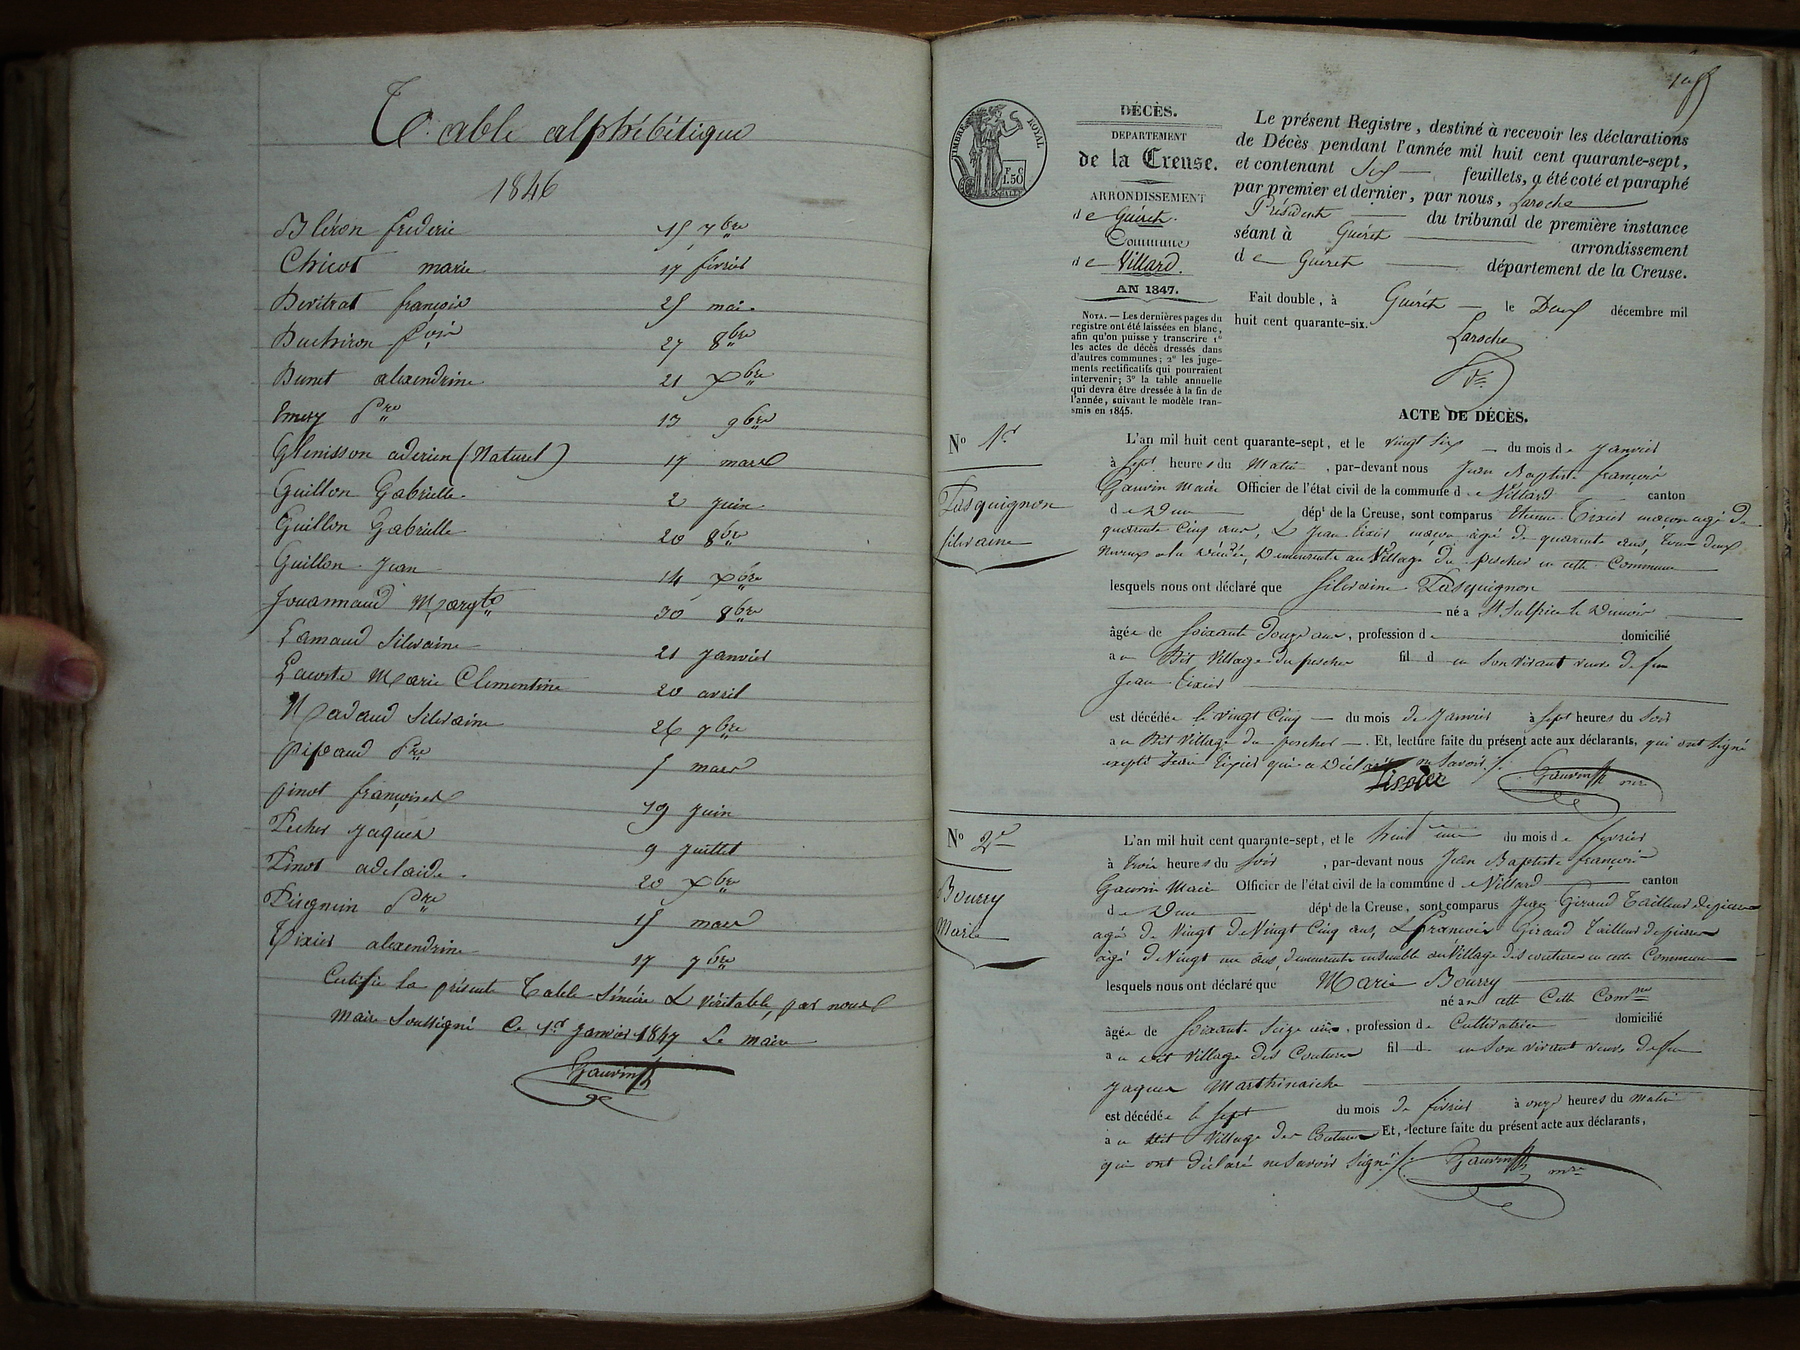 Table alphébétique
1846
Bléron frederic 15 7bre
Chicot marie 17 février
Devitrat françois 25 mai.
Duchiron 27 8bre
Dunet alexendrine 21 Xbre
Emery Pre 13 9bre
Glenisson aderien (Naturel) 17 mars
Guillon Gabrielle 2 juin
Guillon Gabrielle 20 8bre
Guillon Jean 14 Xbre
Jouannaud Margte 30 8bre
Lamaud Silvaine 21 Janvier
Lacoste Marie Clementine 20 avril
Nadaud Silvaine 26 7bre
pifaud Pre 5 mars
pinot françoise 19 Juin
Pecher Jaques 9 Juillet
Pinot adelaide. 20 Xbre
Pirgnin Pre 15 mars
Tixier alexendrine 17 7bre
Certifié la présente Table Sincère & véritable, par nous
Maire Soussigné Ce 1er Janvier 1847 Le maire
Gauvin
TIMBRE ROYAL
1.50
DÉCÈS.
DEPARTEMENT
de la Creuse.
ARRONDISSEMENT
de Guéret.
Commune
de Villard.
AN 1847.
NOTA. — Les dernières pages du
registre ont été laissées en blanc,
afin qu'on puisse y transcrire 1°
les actes de décès dressés dans
d'autres communes; 2° les juge-
ments rectificatifs qui pourraient
intervenir; 3° la table annuelle
qui devra être dressée à la fin de
l'année, suivant le modèle tran-
smis en 1845.
Le présent Registre, destiné à recevoir les déclarations
de Décès pendant l'année mil huit cent quarante-sept,
et contenant Six feuillets, a été coté et paraphé
par premier et dernier, par nous, Laroche
Président du tribunal de première instance
séant à Guéret arrondissement
de Guéret département de la Creuse.
Fait double, à Guéret le Deux décembre mil
huit cent quarante-six.
Laroche
ACTE DE DÉCÈS.
N° 1er
Pasquignon
Silvaine
L'an mil huit cent quarante-sept, et le vingt Six du mois de Janvier
à Sept heures du Matin, par-devant nous Jean Baptiste françois
Gauvin Maire Officier de l'état civil de la commune de Villard canton
de Dun dépt de la Creuse, sont comparus Etienne Tixier maçon agé de
quarante Cinq ans, & Jean Tixier maçon agé de quarante ans, tous deux
Neveux a la Décédée, Demeurants au Village du pescher en cette Commune
lesquels nous ont déclaré que Silvaine Pasquignon
né a St Sulpice le Dunois
âgée de Soixante Douze ans, profession de domicilié
au Dit Village du pescher fil d en Son vivant veuve de feu
Jean Tixier
est décédée le vingt Cinq du mois de Janvier à Sept heures du Soir
au Dit Village du pescher. Et, lecture faite du présent acte aux déclarants, qui ont Signé
excepté Jean Tixier qui a Déclaré ne Savoir
Tissier Gauvin mre
N° 2e
Bourry
Marie
L'an mil huit cent quarante-sept, et le huit du mois de février
à trois heures du Soir, par-devant nous Jean Baptiste françois
Gauvin Maire Officier de l'état civil de la commune de Villard canton
de Dun dépt de la Creuse, sont comparus Jean Giraud Tailleur de pierre
agé de Vingt Cinq ans, & François Giraud Tailleur de pierre
agé de Vingt un ans, demeurants ensemble au Village des coutures en cette Commune
lesquels nous ont déclaré que Marie Bourry
né an cette Comne
âgée de Soixante Seize ans, profession de Cultivatrice domicilié
au Village des Coutures fil d en Son vivant veuve de feu
Jaques Marthinaiche
est décédée le Sept du mois de février à onze heures du matin
à au dit Village des Coutures Et, lecture faite du présent acte aux déclarants,
qui ont déclaré ne Savoir Signé
Gauvin mre